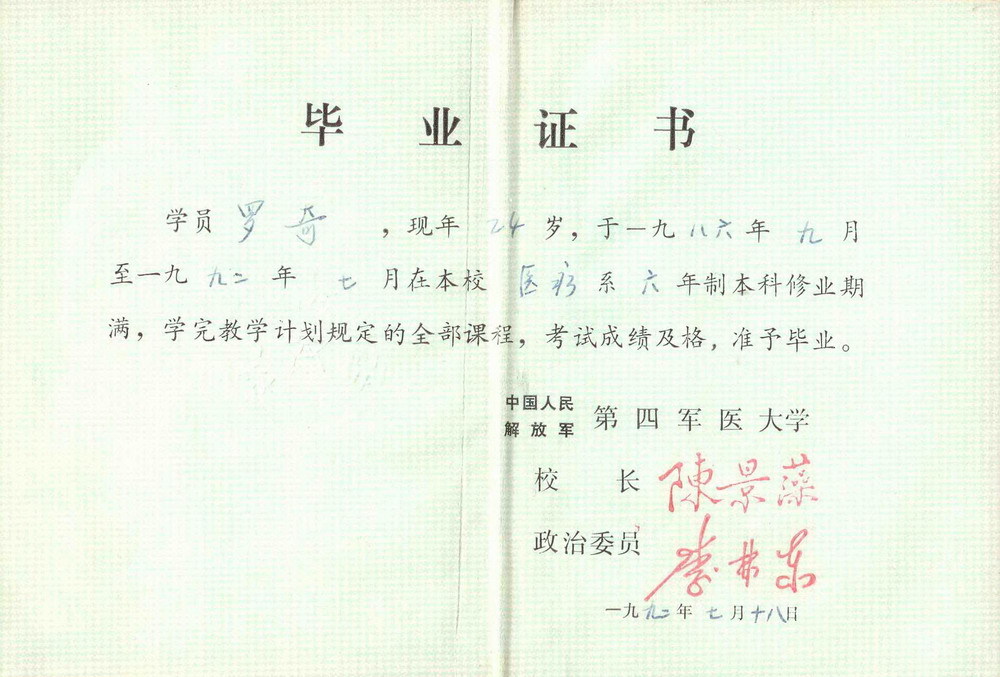 毕业证书
学员罗奇，现年24岁，于一九八六年九月
至一九九二年七月在本校医疗系六年制本科修业期
满，学完教学计划规定的全部课程，考试成绩及格，准予毕业。
中国人民
解放军 第四军医大学
校长 陳景藻
政治委员
一九九二年七月十八日